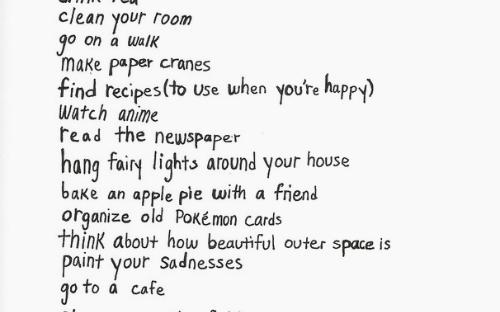 clean your room
go on a walk
make paper cranes
find recipes (to use when you're happy)
Watch anime
read the newspaper
hang fairy lights around your house
bake an apple pie with a friend
organize old Pokémon cards
think about how beautiful outer space is
paint your sadnesses
go to a cafe